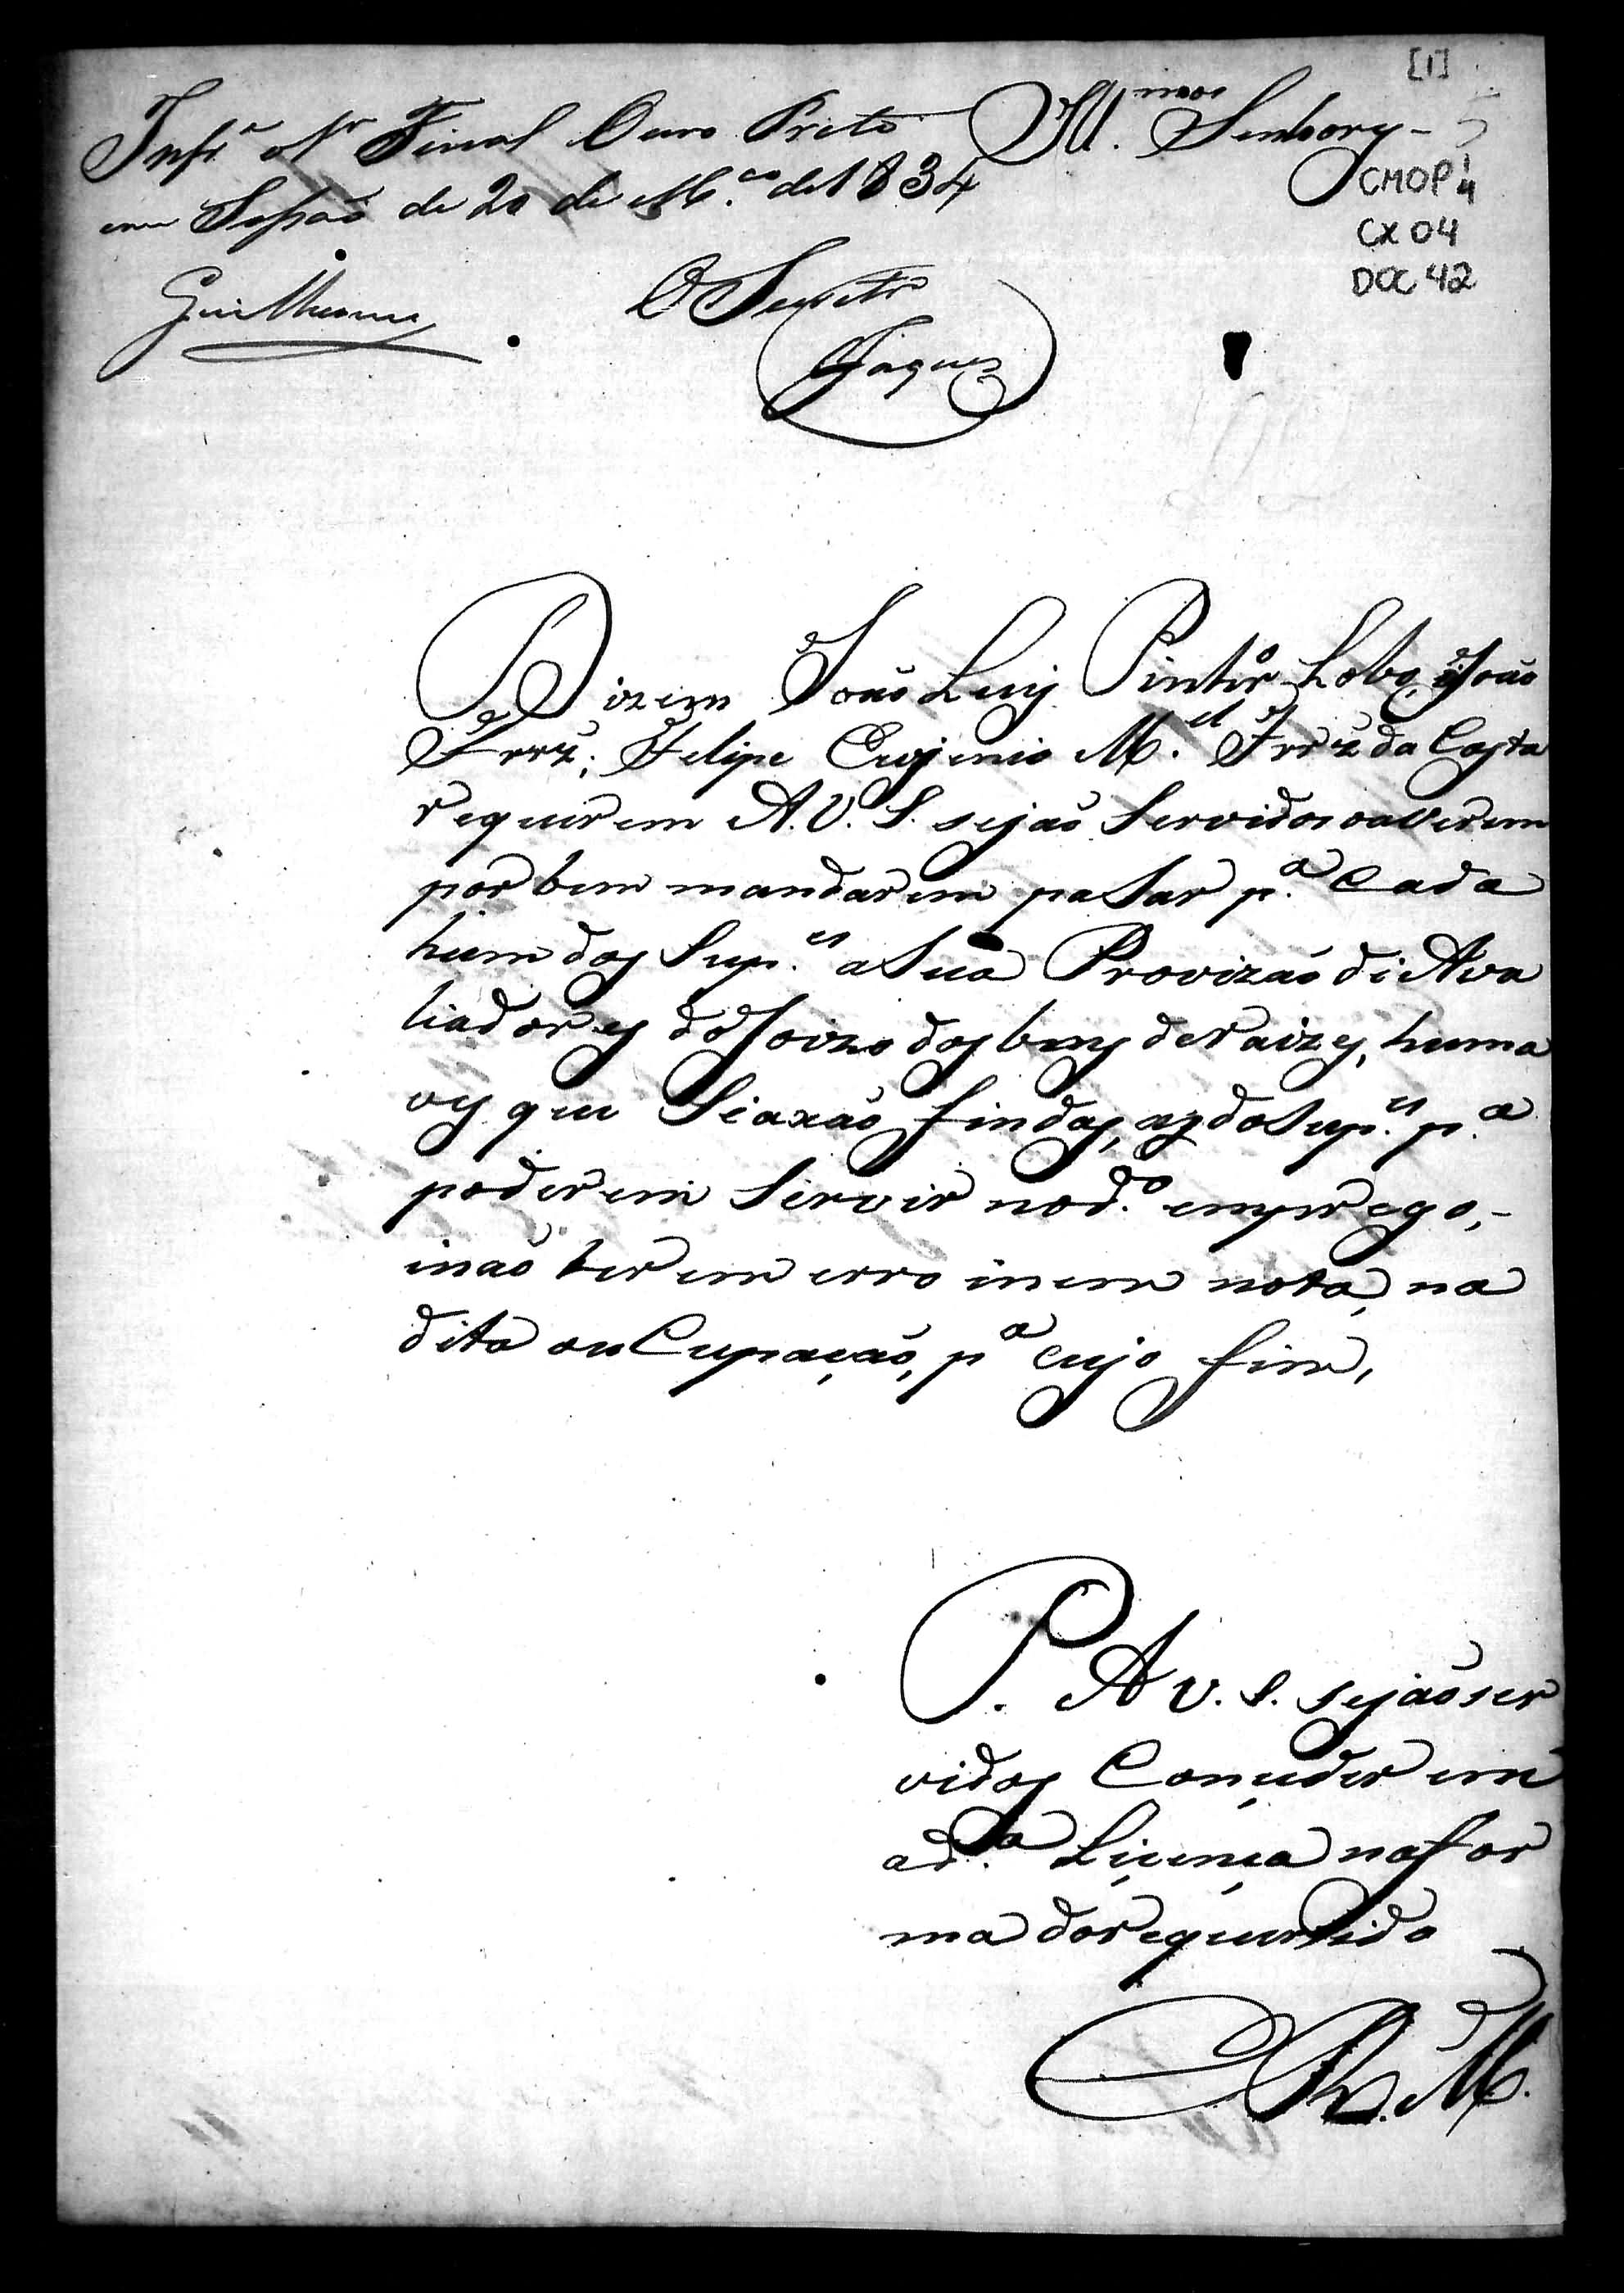 [1]
Ill.mos Senhores
CMOP
CX 04
DOC 42
Infr.e o Sr Fiscal Ouro Preto
em Sessaõ de 20 de M.ço de 1834
Guilherme
O Secretr.o
Jaques
Dizem Joaõ Luis Pinto Lobo, Joaõ
Frrz, Felipe Eugenio M.el Frrz da Costa
requerem A. V. S. sejaõ Servidos averem
por bem mandarem paSar p.a Cada
hum dos Sup.es a Sua Provizaõ de Ava
liadores do Joizo dos bens de raizes, huma
ves que Se axaõ findas, as do Sup.es p.a
poderem Servir no d.o emprego,
inaõ terem erro inem nota, na
dita ouCupaçaõ, p.a cujo fim,
P. A V. S. sejaõ ser
vidos Conçederem
a d.a Liçença na for
ma do requerido
E R. M.